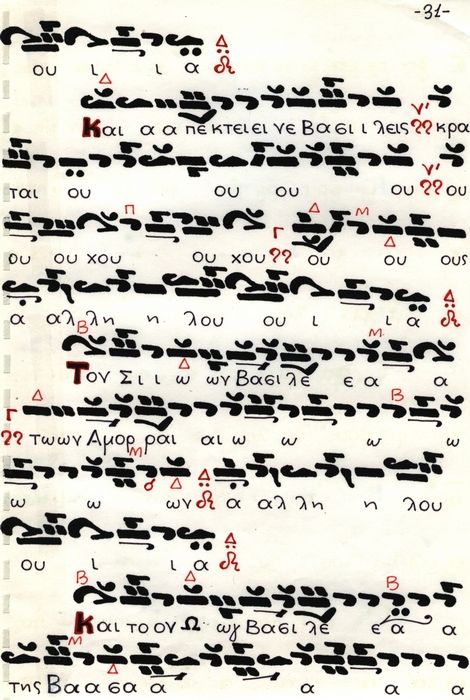 -31-
ου ι ι α
Και α α πε κτειει νε Βασι ι λεις κρα
ται ου ου ου ου ου
ου ου χου ου χου ου ου ους
α αλ λη η λου ου ι ι α
Τον Σι ι ω ων Βασι λε ε α α
των ων Αμορ ραι αι ω ω ω ω
ω ω ων α αλ λη η λου
ου ι ι α
Και το ον Ω ωγ Βασι λε ε α α
της Βα α σα α α α α α